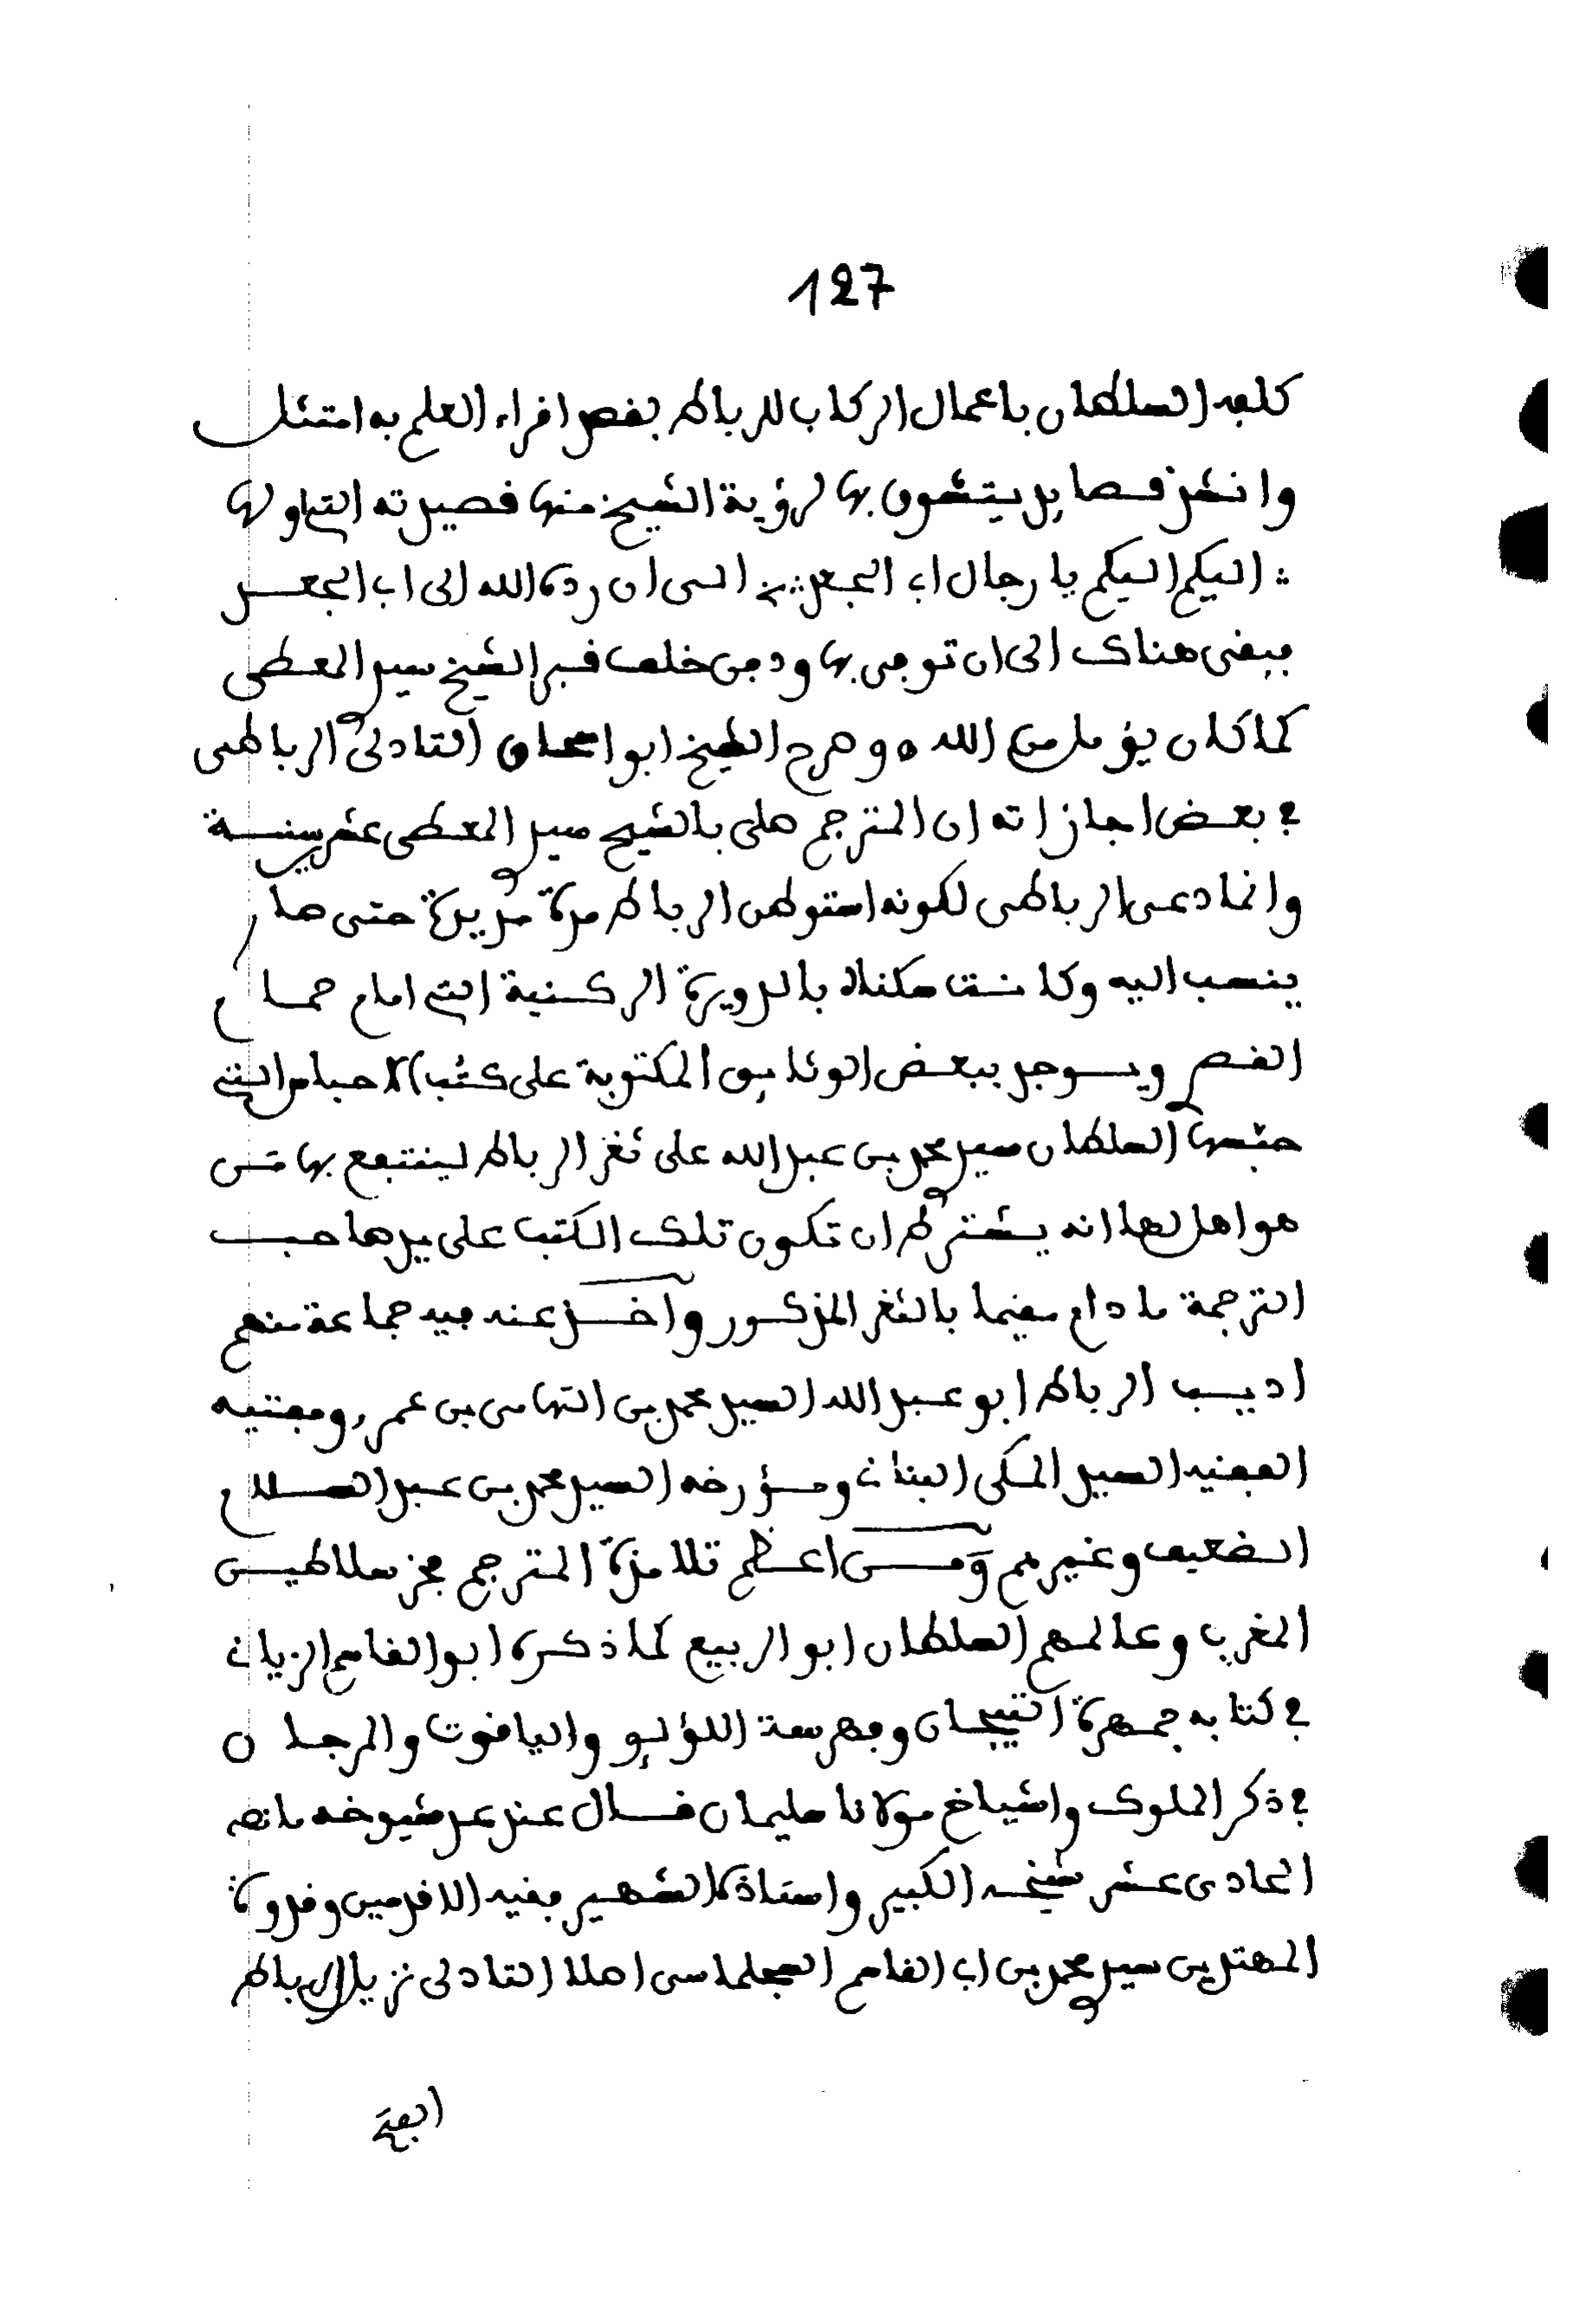 127
كلفه السلطان باعمال الركاب للرباط بقصد اقراء العلم به امتثل
وانشد قصايد يتشوق بها لرؤية الشيخ منها قصيدته التى اولها
: اليكم اليكم يا رجال ابى الجعد : الى ان رده الله الى ابى الجعد
فبقى هناك الى ان توفى بها ودفن خلف قبر الشيخ سيدى المعطى
كما كان يؤمل من الله ه وصرح الشيخ ابو اسحاق التادلى الرباطى
فى بعض اجازاته ان المترجم صلى بالشيخ سيدى المعطى عشرين سنة
وانما دعى الرباطى لكونه استوطن الرباط مدة مديدة حتى صار
ينسب اليه وكانت سكناه بالدويرة الركنية التى امام حمام
القصر ويوجد ببعض الوثايق المكتوبة على كتب الاحباس التى
حبسها السلطان سيدى محمد بن عبد الله على ثغر الرباط لينتفع بها من
هو اهل لها انه يشترط ان تكون تلك الكتب على يد صاحب
الترجمة ما دام مقيما بالثغر المذكور واخذ عنه فيه جماعة منهم
اديب الرباط ابو عبد الله السيد محمد بن التهامى بن عمرو ومفتيه
الفقيه السيد المكى البنانى ومؤرخه السيد محمد بن عبد السلام
الضعيف وغيرهم ومن اعظم تلامذة المترجم فخر سلاطين
المغرب وعالمهم السلطان ابو الربيع كما ذكره ابو القاسم الزيانى
فى كتابه جمهرة التيجان وفهرسة اللؤلؤ والياقوت والمرجان
فى ذكر الملوك واشياخ مولانا سليمان قال عند عد شيوخه ما نصه
الحادى عشر شيخه الكبير واستاذه الشهير بقية الاقدمين وقدوة
المهتدين سيدى محمد بن ابى القاسم السجلماسى اصلا التادلى نزيل الرباط